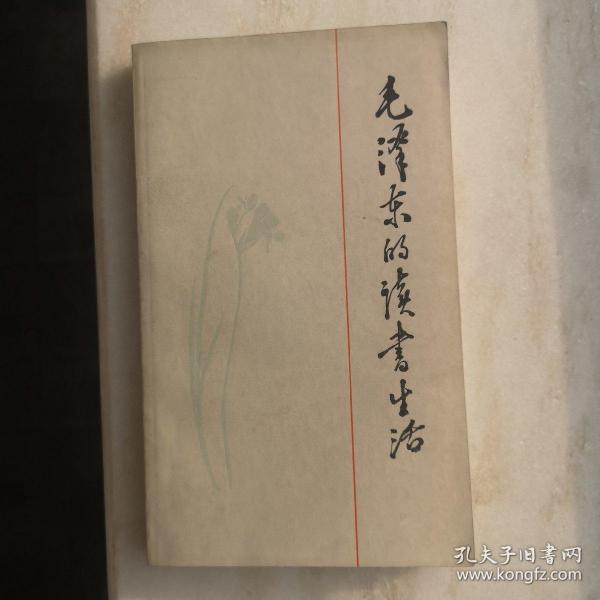 毛泽东的读书生活
孔夫子旧書网
www.kongfz.com